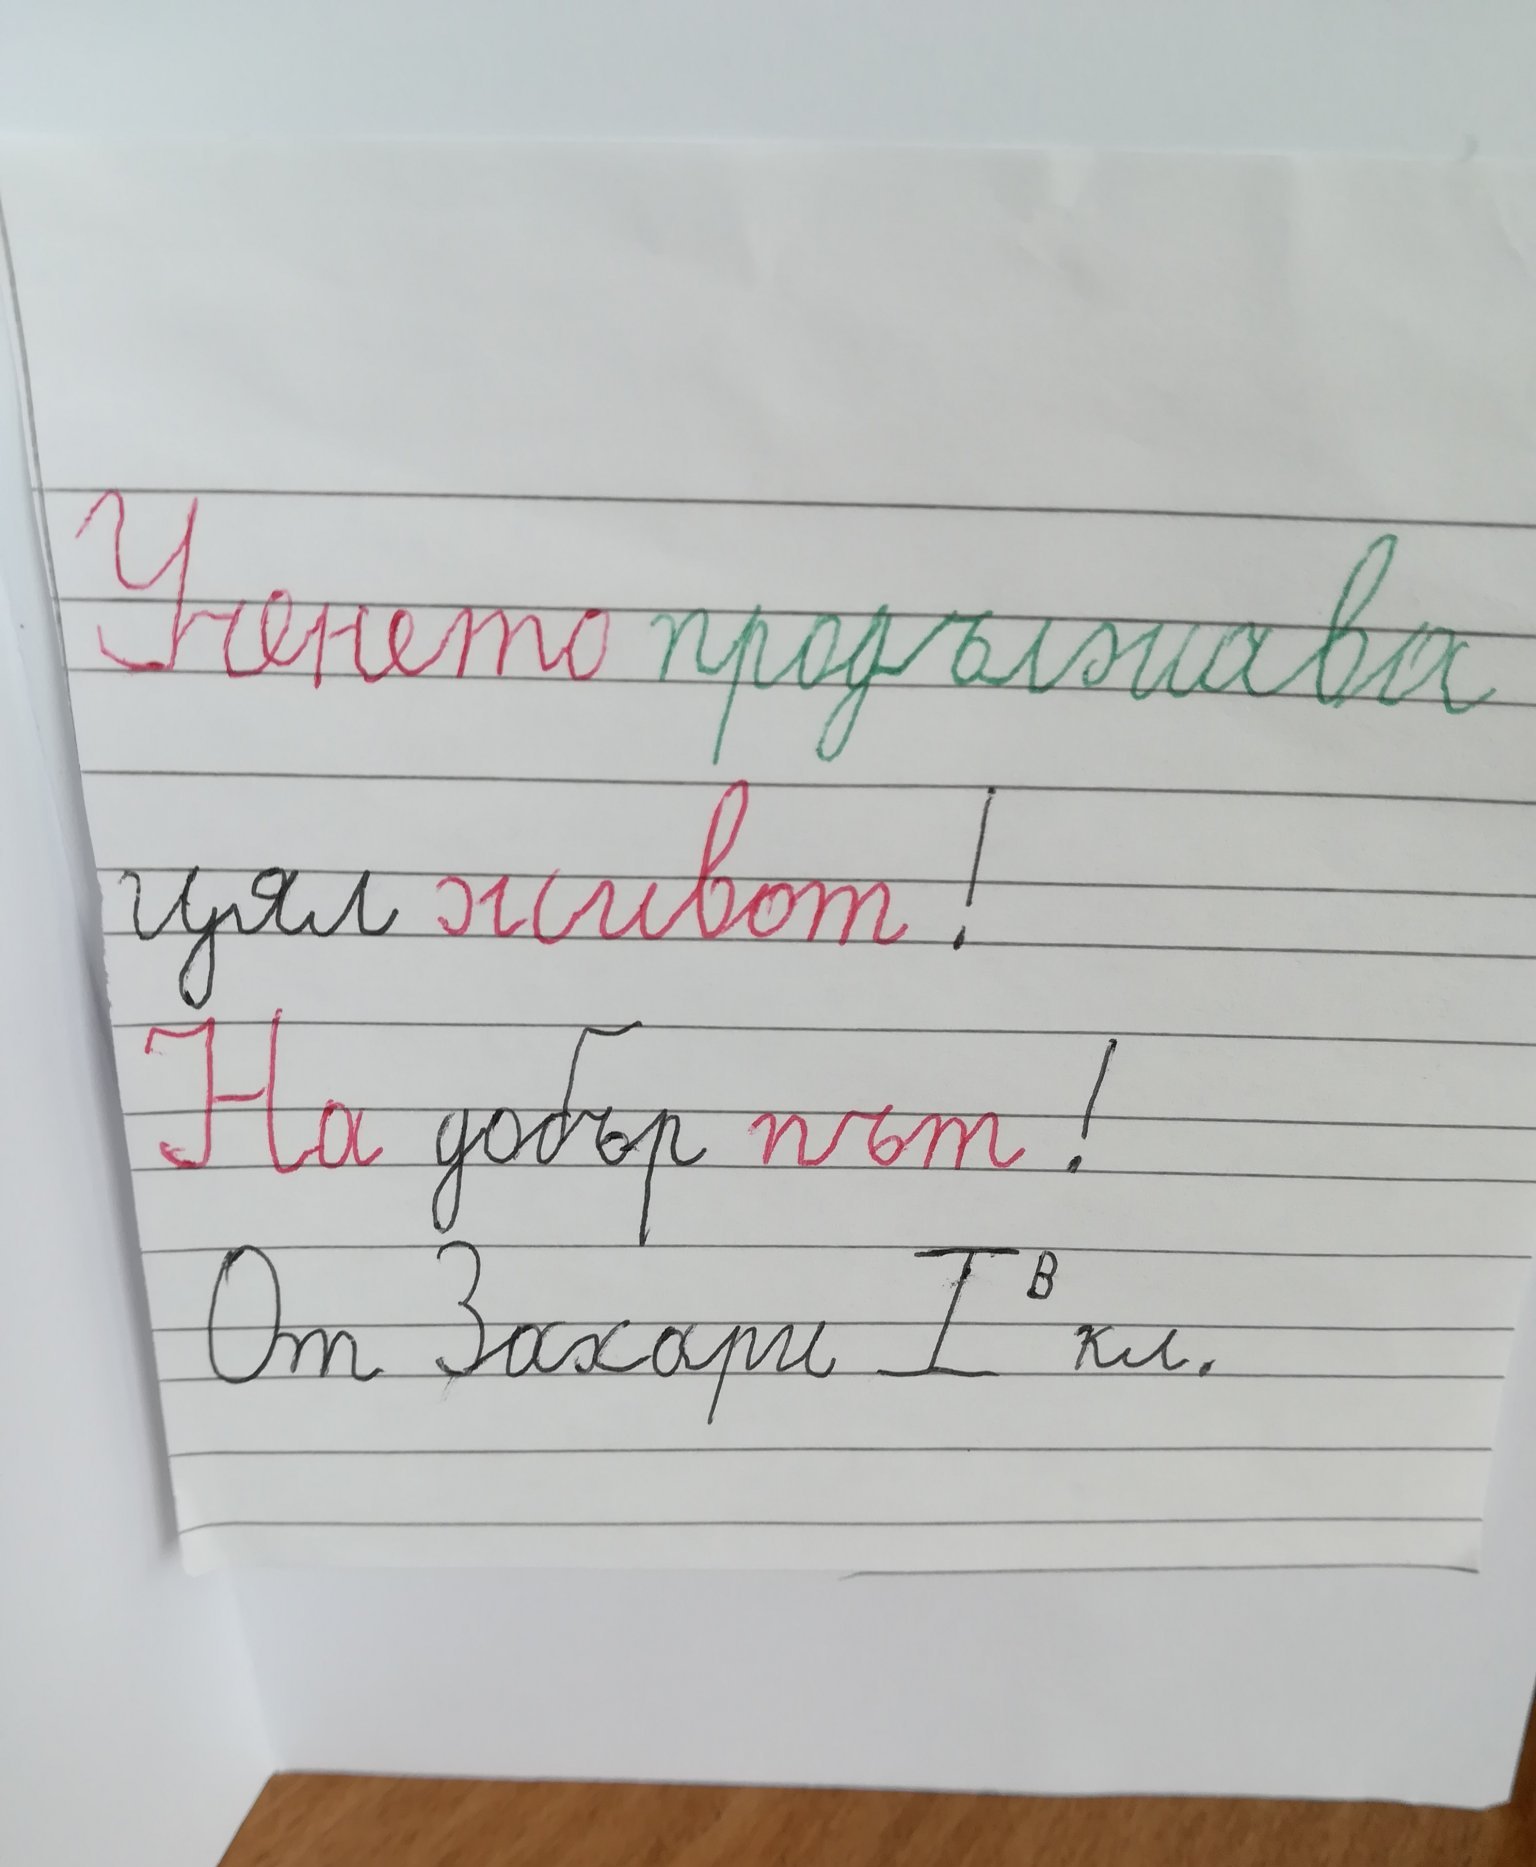 Ученето продължава
цял живот!
На добър път!
От Захари I в кл.